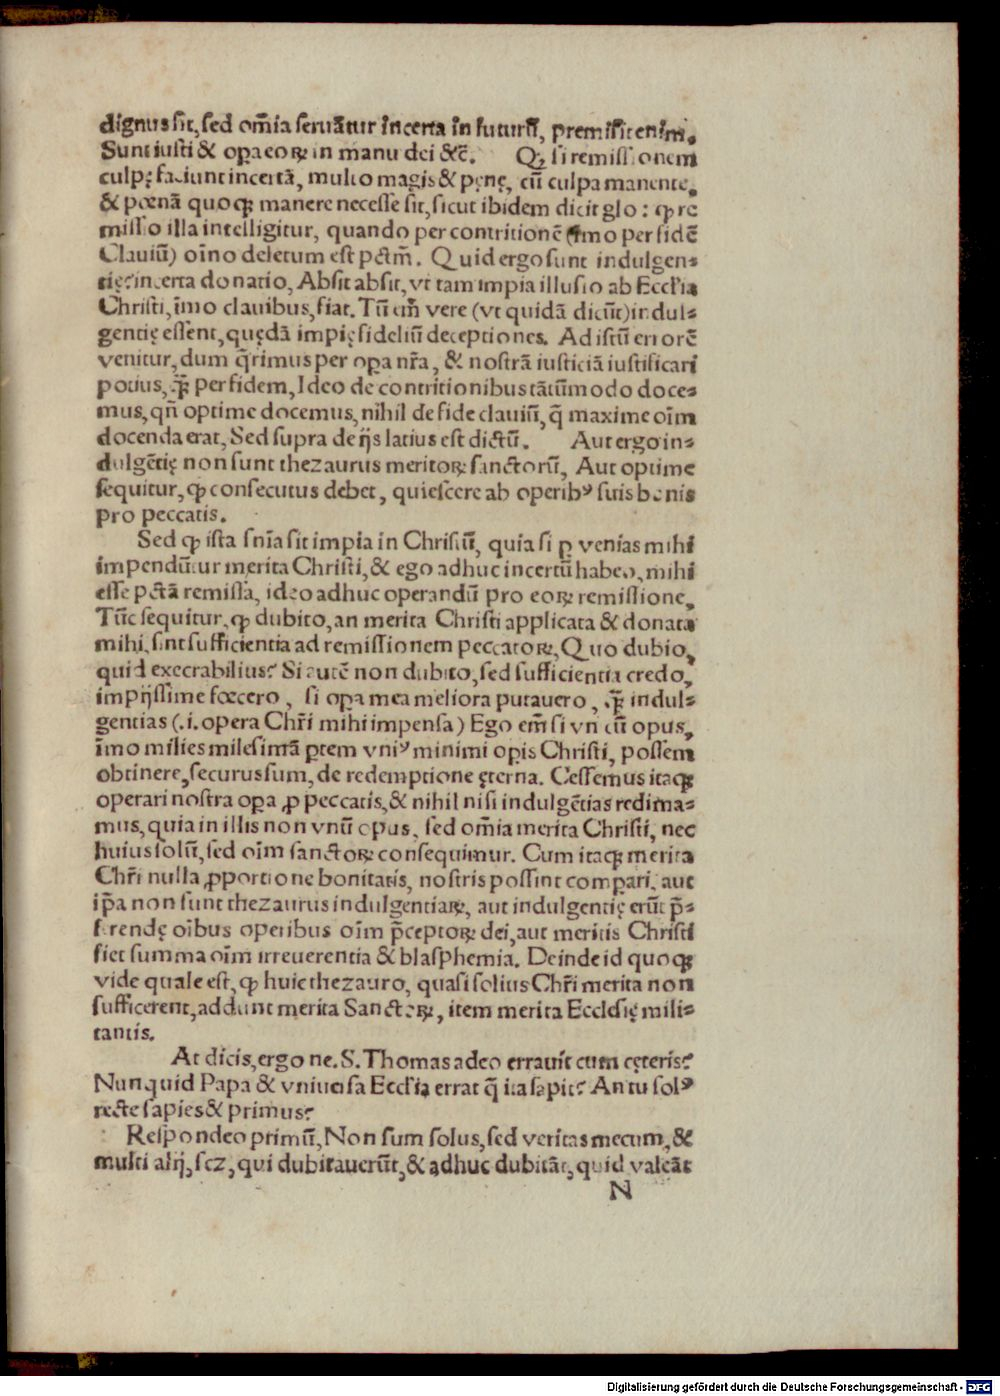 dignus sit, sed om̃ia seruãtur incerta in futurũ, premisit enim.
Sunt iusti & oꝑa eoꝝ in manu dei &c̃. Qꝫ si remissionem
culpę faciunt incertã, multo magis & pęnę, cũ culpa manente,
& pœnã quoqꝫ manere necesse sit, sicut ibidem dicit glo: ꝙ re
missio illa intelligitur, quando per contritionẽ (imo per fidẽ
Clauiũ) oĩno deletum est pctm̃. Quid ergo sunt indulgen⸗
tię? incerta donatio, Absit absit, vt tam impia illusio ab Eccl'ia
Christi, ĩmo clauibus, fiat. Tũ em̃ vere (vt quidã dicũt) indul⸗
gentię essent, quędã impię fideliũ deceptiones. Ad istũ errorẽ
venitur, dum q̃rimus per oꝑa nr̃a, & nostrã iusticiã iustificari
potius, q̃ꝫ per fidem, Ideo de contritionibus tãtũmodo doce⸗
mus, qñ optime docemus, nihil de fide clauiũ, q̃ maxime oĩm
docenda erat, Sed supra de ijs latius est dictũ. Aut ergo in⸗
dulgẽtię non sunt thezaurus meritoꝝ sanctorũ, Aut optime
sequitur, ꝙ consecutus debet, quiescere ab operibꝰ suis bonis
pro peccatis.
Sed ꝙ ista snĩa sit impia in Christũ, quia si ꝑ venias mihi
impendũtur merita Christi, & ego adhuc incertũ habeo, mihi
esse pctã remissa, ideo adhuc operandũ pro eoꝝ remissione,
Tũc sequitur, ꝙ dubito, an merita Christi applicata & donata
mihi, sint sufficientia ad remissionem peccatoꝝ, Quo dubio,
quid execrabilius? Si autẽ non dubito, sed sufficientia credo,
impijssime fœcero, si oꝑa mea meliora putauero, q̃ꝫ indul⸗
gentias (.i. opera Chr̃i mihi impensa) Ego em̃ si vnũ opus,
ĩmo milies milesimã ꝑtem vniꝰ minimi oꝑis Christi, possem
obtinere, securus sum, de redemptione ęterna. Cessemus itaqꝫ
operari nostra oꝑa ꝓ peccatis, & nihil nisi indulgẽtias redima⸗
mus, quia in illis non vnũ opus, sed om̃ia merita Christi, nec
huius solũ, sed oĩm sanctoꝝ consequimur. Cum itaqꝫ merita
Chr̃i nulla ꝓportione bonitatis, nostris possint compari, aut
ip̃a non sunt thezaurus indulgentiaꝝ, aut indulgentię erũt p̃⸗
ferendę oĩbus operibus oĩm p̃ceptoꝝ dei, aut meritis Christi
fiet summa oĩm irreuerentia & blasphemia. Deinde id quoqꝫ
vide quale est, ꝙ huic thezauro, quasi solius Chr̃i merita non
sufficerent, addunt merita Sanctoꝝ, item merita Ecclesię mili⸗
tantis.
At dicis, ergo ne. S. Thomas adeo errauit cum cęteris?
Nunquid Papa & vniuersa Eccl'ia errat q̃ ita sapit? An tu solꝰ
recte sapies & primus?
Respondeo primũ, Non sum solus, sed veritas mecum, &
multi alij, scz, qui dubitauerũt, & adhuc dubitãt, quid valeãt
N
Digitalisierung gefördert durch die Deutsche Forschungsgemeinschaft - DFG